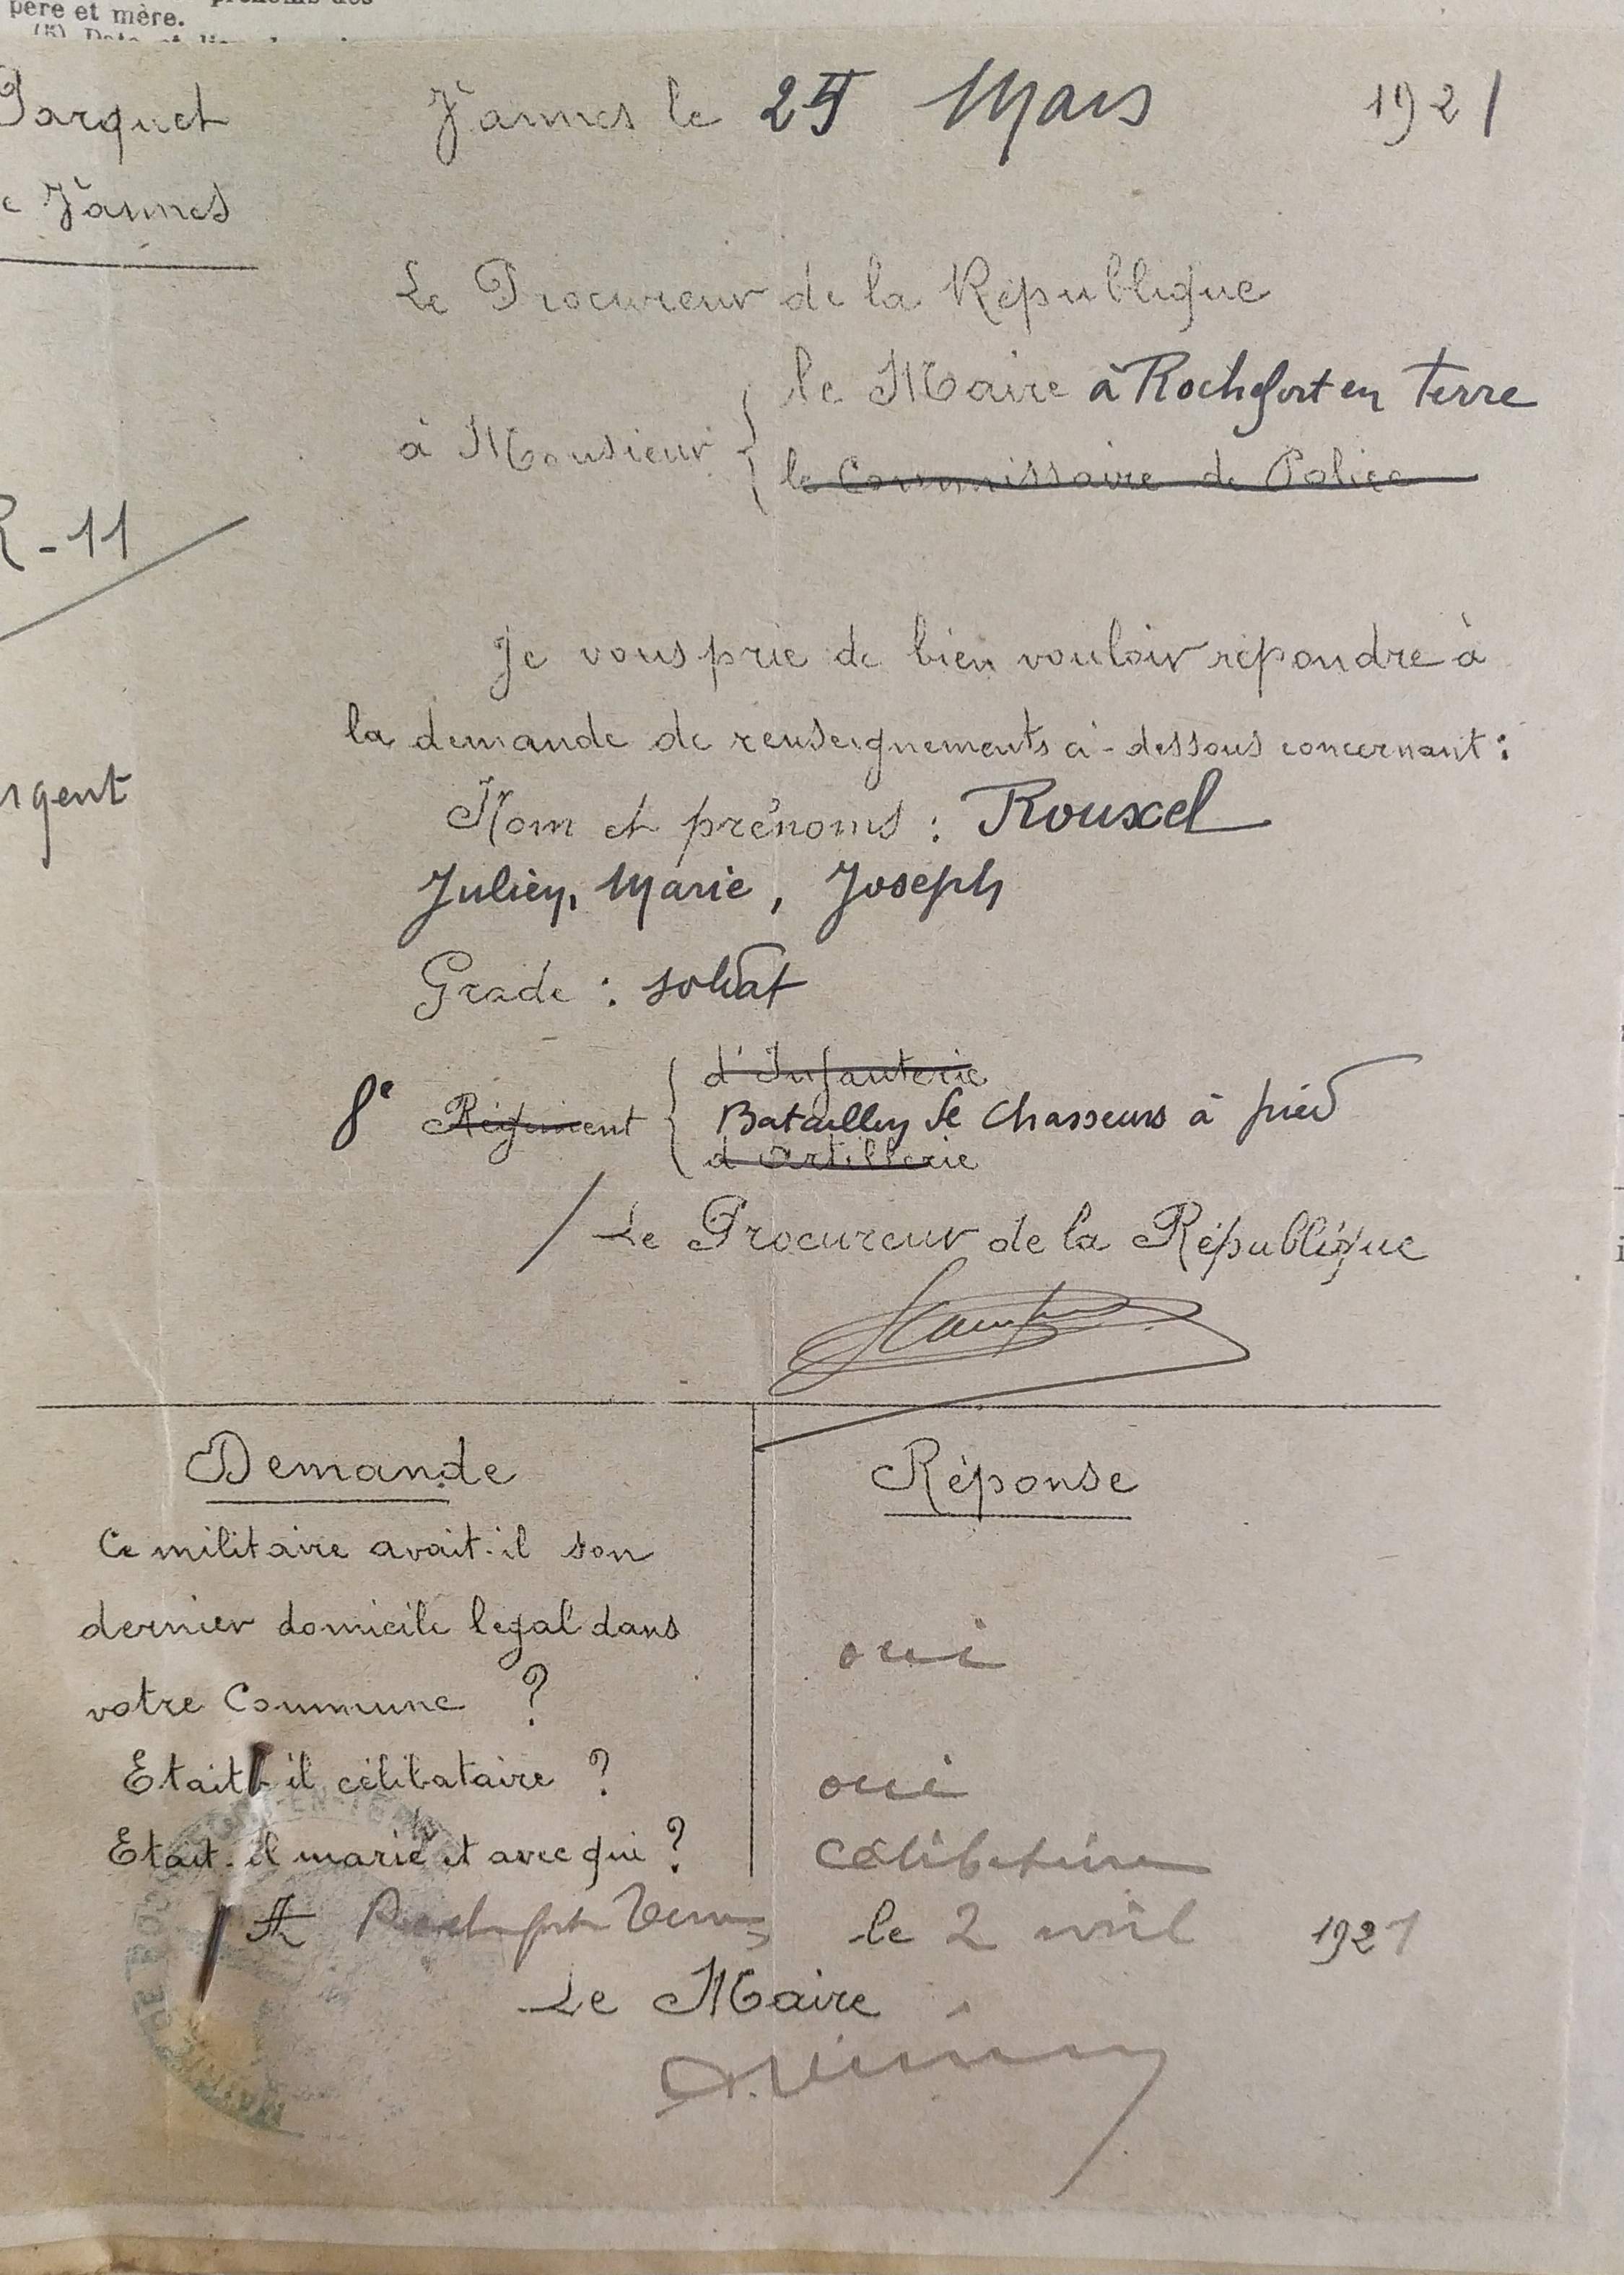 père et mère.
Parquet
Vannes le 25 Mars 1921
de Vannes
Le Procureur de la République
à Monsieur
le Maire à Rochefort en Terre
le Commissaire de Police
R - 11
Je vous prie de bien vouloir répondre à
la demande de renseignements ci-dessous concernant :
urgent
Nom et prénoms : Rouxel
Julien, Marie, Joseph
Grade : soldat
d'Infanterie
8e Régiment
Bataillon de Chasseurs à pied
d'Artillerie
/ Le Procureur de la République
Demande
Réponse
Ce militaire avait-il son
dernier domicile légal dans
votre Commune ?
oui
Etait-il célibataire ?
oui
Etait-il marié et avec qui ?
célibataire
A Rochefort Terre le 2 avril 1921
Le Maire
MAIRIE DE ROCHEFORT-EN-TERRE